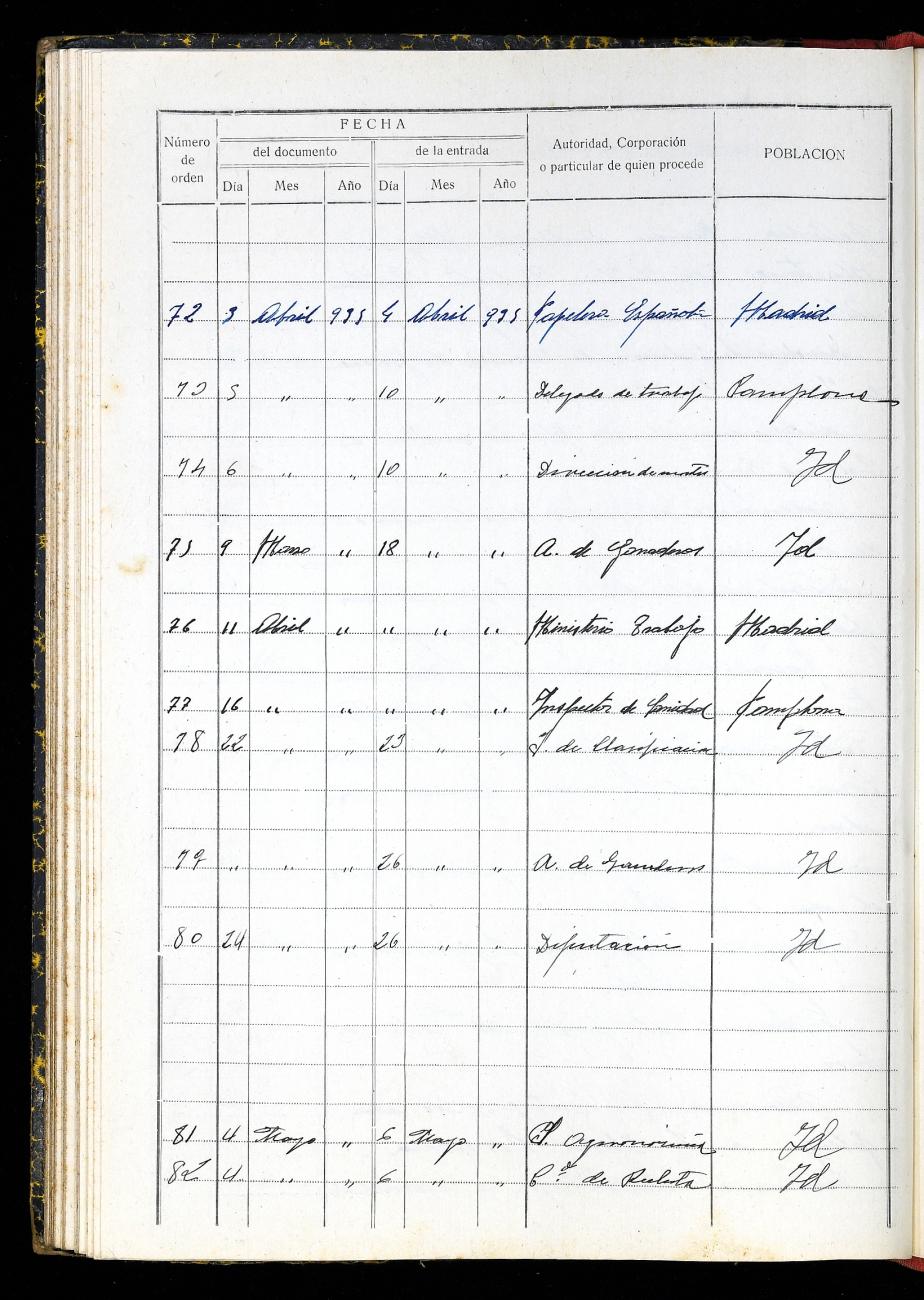 FECHA
Número de orden
del documento
de la entrada
Autoridad, Corporación o particular de quien procede
POBLACION
Día Mes Año Día Mes Año
72 3 Abril 935 4 Abril 935 Papelera Española Madrid
73 5 „ „ 10 „ „ Delegado de trabajo Pamplona
74 6 „ „ 10 „ „ Direccion de montes Id
75 9 Marzo „ 18 „ „ A. de Ganaderos Id
76 11 Abril „ „ „ „ Ministerio Trabajo Madrid
77 16 „ „ „ „ „ Inspector de Sanidad Pamplona
78 22 „ „ 23 „ „ J. de Clasificacion Id
79 „ „ „ 26 „ „ A. de Ganaderos Id
80 24 „ „ 26 „ „ Diputación Id
81 4 Mayo „ 6 Mayo „ Agronomica Id
82 4 „ „ 6 „ „ de Recluta Id